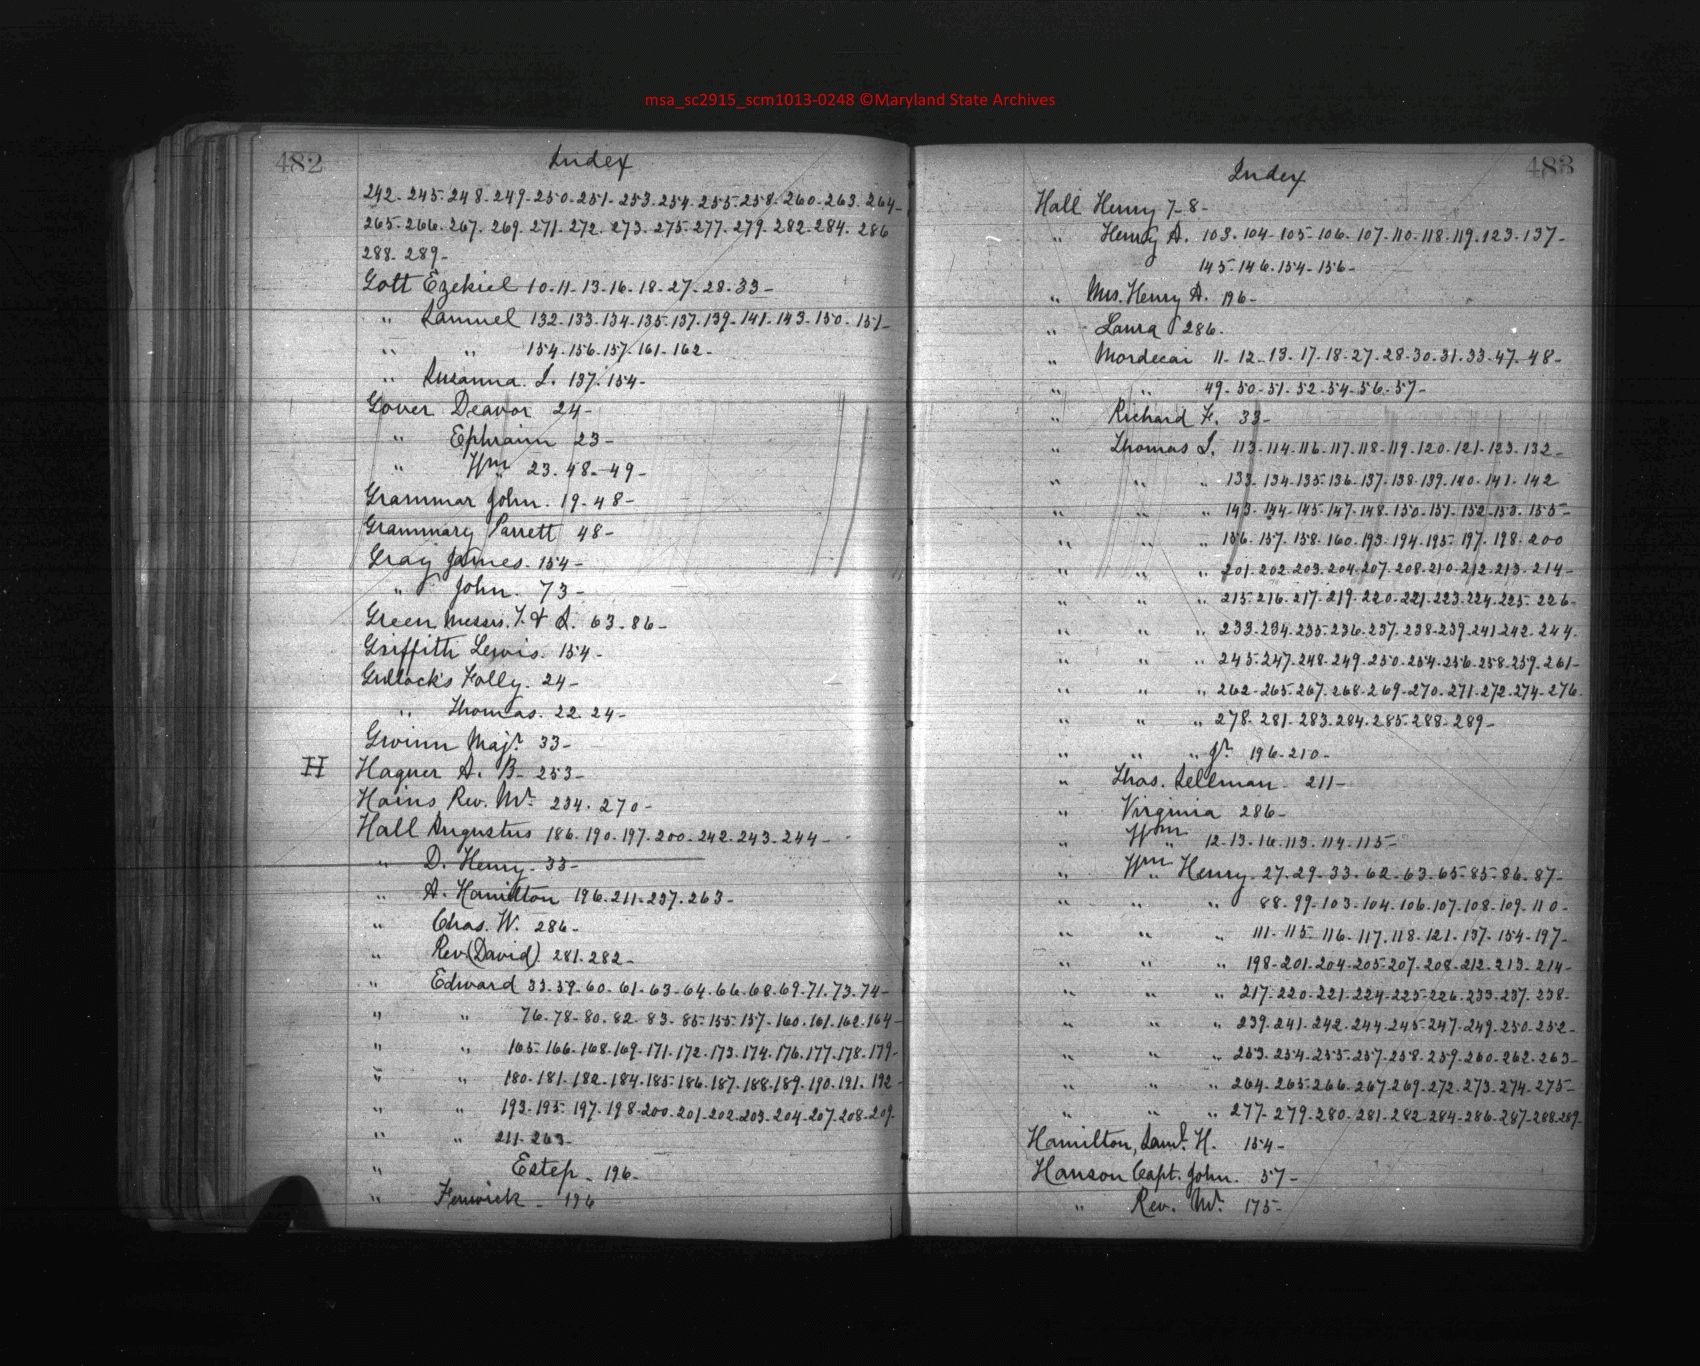 msa_sc2915_scm1013-0248 ©Maryland State Archives
482
Index
242-245-248-249-250-251-253-254-255-258-260-263-264-
265-266-267-269-271-272-273-275-277-279-282-284-286
288-289-
Gott Ezekiel 10-11-13-16-18-27-28-33-
" Samuel 132-133-134-135-137-139-141-143-150-151-
" " 154-156-157-161-162-
" Susanna. S. 137-154-
Gover Deavor 24-
" Ephraim 23-
" Wm 23-48-49-
Grammar John. 19-48-
Grammary Parrett 48-
Gray James. 154-
" John. 73-
Green Messrs. J. & S. 63-86-
Griffith Lewis. 154-
Gullock's Folly. 24-
" Thomas. 22-24-
Gwinn Majr. 33-
H
Hagner A. B- 253-
Hains Rev. Mr. 234-270-
Hall Augustus 186-190-197-200-242-243-244-
" D. Henry- 33-
" A. Hamilton 196-211-237-263-
" Chas. W. 286-
" Rev (David) 281-282-
" Edward 33-59-60-61-63-64-66-68-69-71-73-74-
" " 76-78-80-82-83-85-155-157-160-161-162-164-
" " 165-166-168-169-171-172-173-174-176-177-178-179-
" " 180-181-182-184-185-186-187-188-189-190-191-192-
" " 193-195-197-198-200-201-202-203-204-207-208-209-
" " 211-263-
" Estep- 196-
" Fenwick- 196
483
Index
Hall Henry 7-8-
" Henry A. 103-104-105-106-107-110-118-119-123-137-
145-146-154-156-
" Mrs. Henry A. 196-
" Laura 286-
" Mordecai 11-12-13-17-18-27-28-30-31-33-47-48-
" " 49-50-51-52-54-56-57-
" Richard F. 33-
" Thomas S. 113-114-116-117-118-119-120-121-123-132-
" " " 133-134-135-136-137-138-139-140-141-142
" " " 143-144-145-147-148-150-151-152-153-155-
" " " 156-157-158-160-193-194-195-197-198-200
" " " 201-202-203-204-207-208-210-212-213-214-
" " " 215-216-217-219-220-221-223-224-225-226-
" " " 233-234-235-236-237-238-239-241-242-244-
" " " 245-247-248-249-250-254-256-258-259-261-
" " " 262-265-267-268-269-270-271-272-274-276-
" " " 278-281-283-284-285-288-289-
" " " Jr. 196-210-
" Thos. Sellman- 211-
" Virginia 286-
" Wm 12-13-16-113-114-115-
" Wm Henry- 27-29-33-62-63-65-85-86-87-
" " " 88-99-103-104-106-107-108-109-110-
" " " 111-115-116-117-118-121-137-154-197-
" " " 198-201-204-205-207-208-212-213-214-
" " " 217-220-221-224-225-226-233-237-238-
" " " 239-241-242-244-245-247-249-250-252-
" " " 253-254-255-257-258-259-260-262-263-
" " " 264-265-266-267-269-272-273-274-275-
" " " 277-279-280-281-282-284-286-287-288-289-
Hamilton, Saml. H. 154-
Hanson Capt. John. 57-
" Rev. Mr. 175-